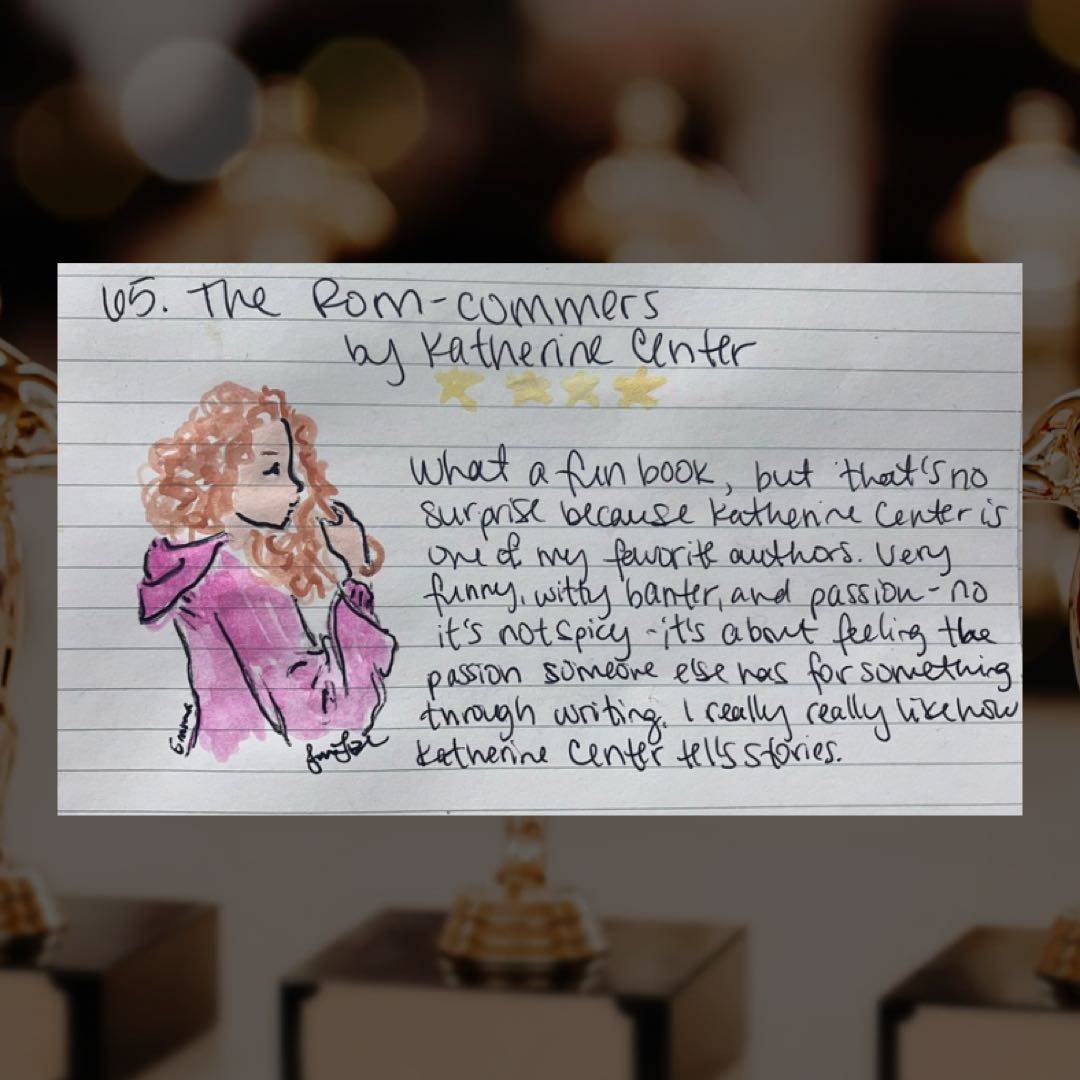 65. The Rom-commers
by Katherine Center
What a fun book, but that's no
surprise because Katherine Center is
one of my favorite authors. Very
funny, witty banter, and passion - no
it's not spicy - it's about feeling the
passion someone else has for something
through writing. I really really like how
Katherine Center tells stories.
Emma